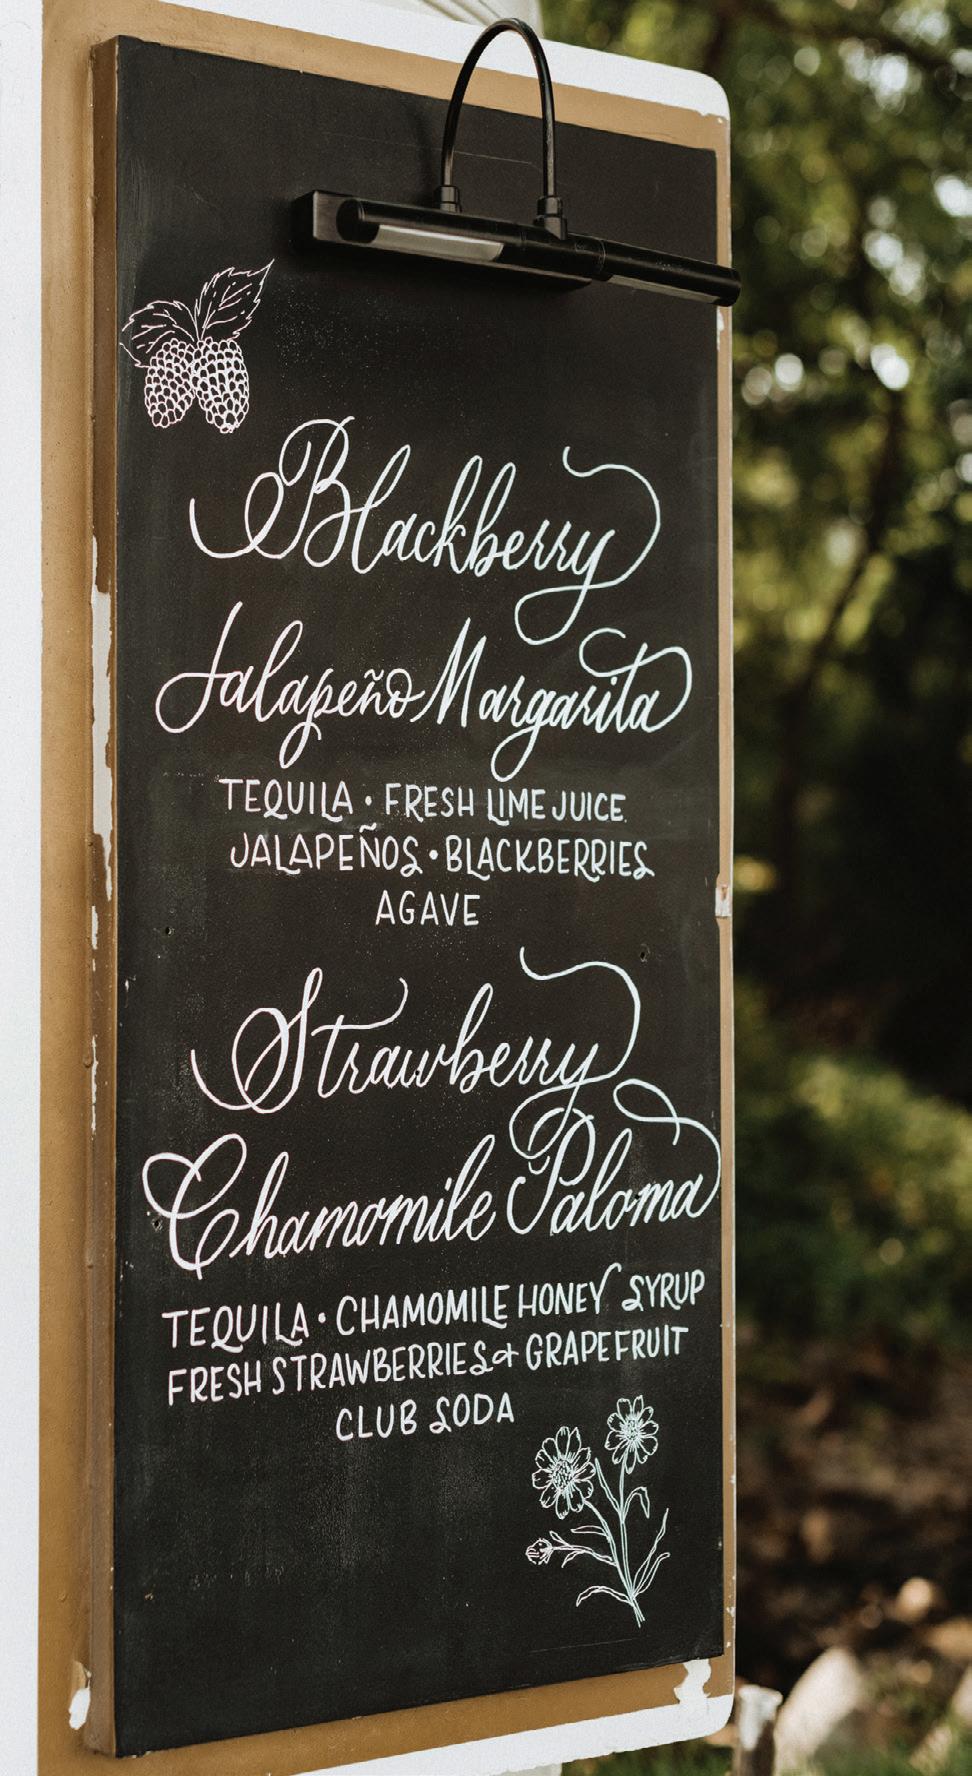 Blackberry
Jalapeño Margarita
TEQUILA • FRESH LIME JUICE
JALAPEÑOS • BLACKBERRIES
AGAVE
Strawberry
Chamomile Paloma
TEQUILA • CHAMOMILE HONEY SYRUP
FRESH STRAWBERRIES & GRAPEFRUIT
CLUB SODA